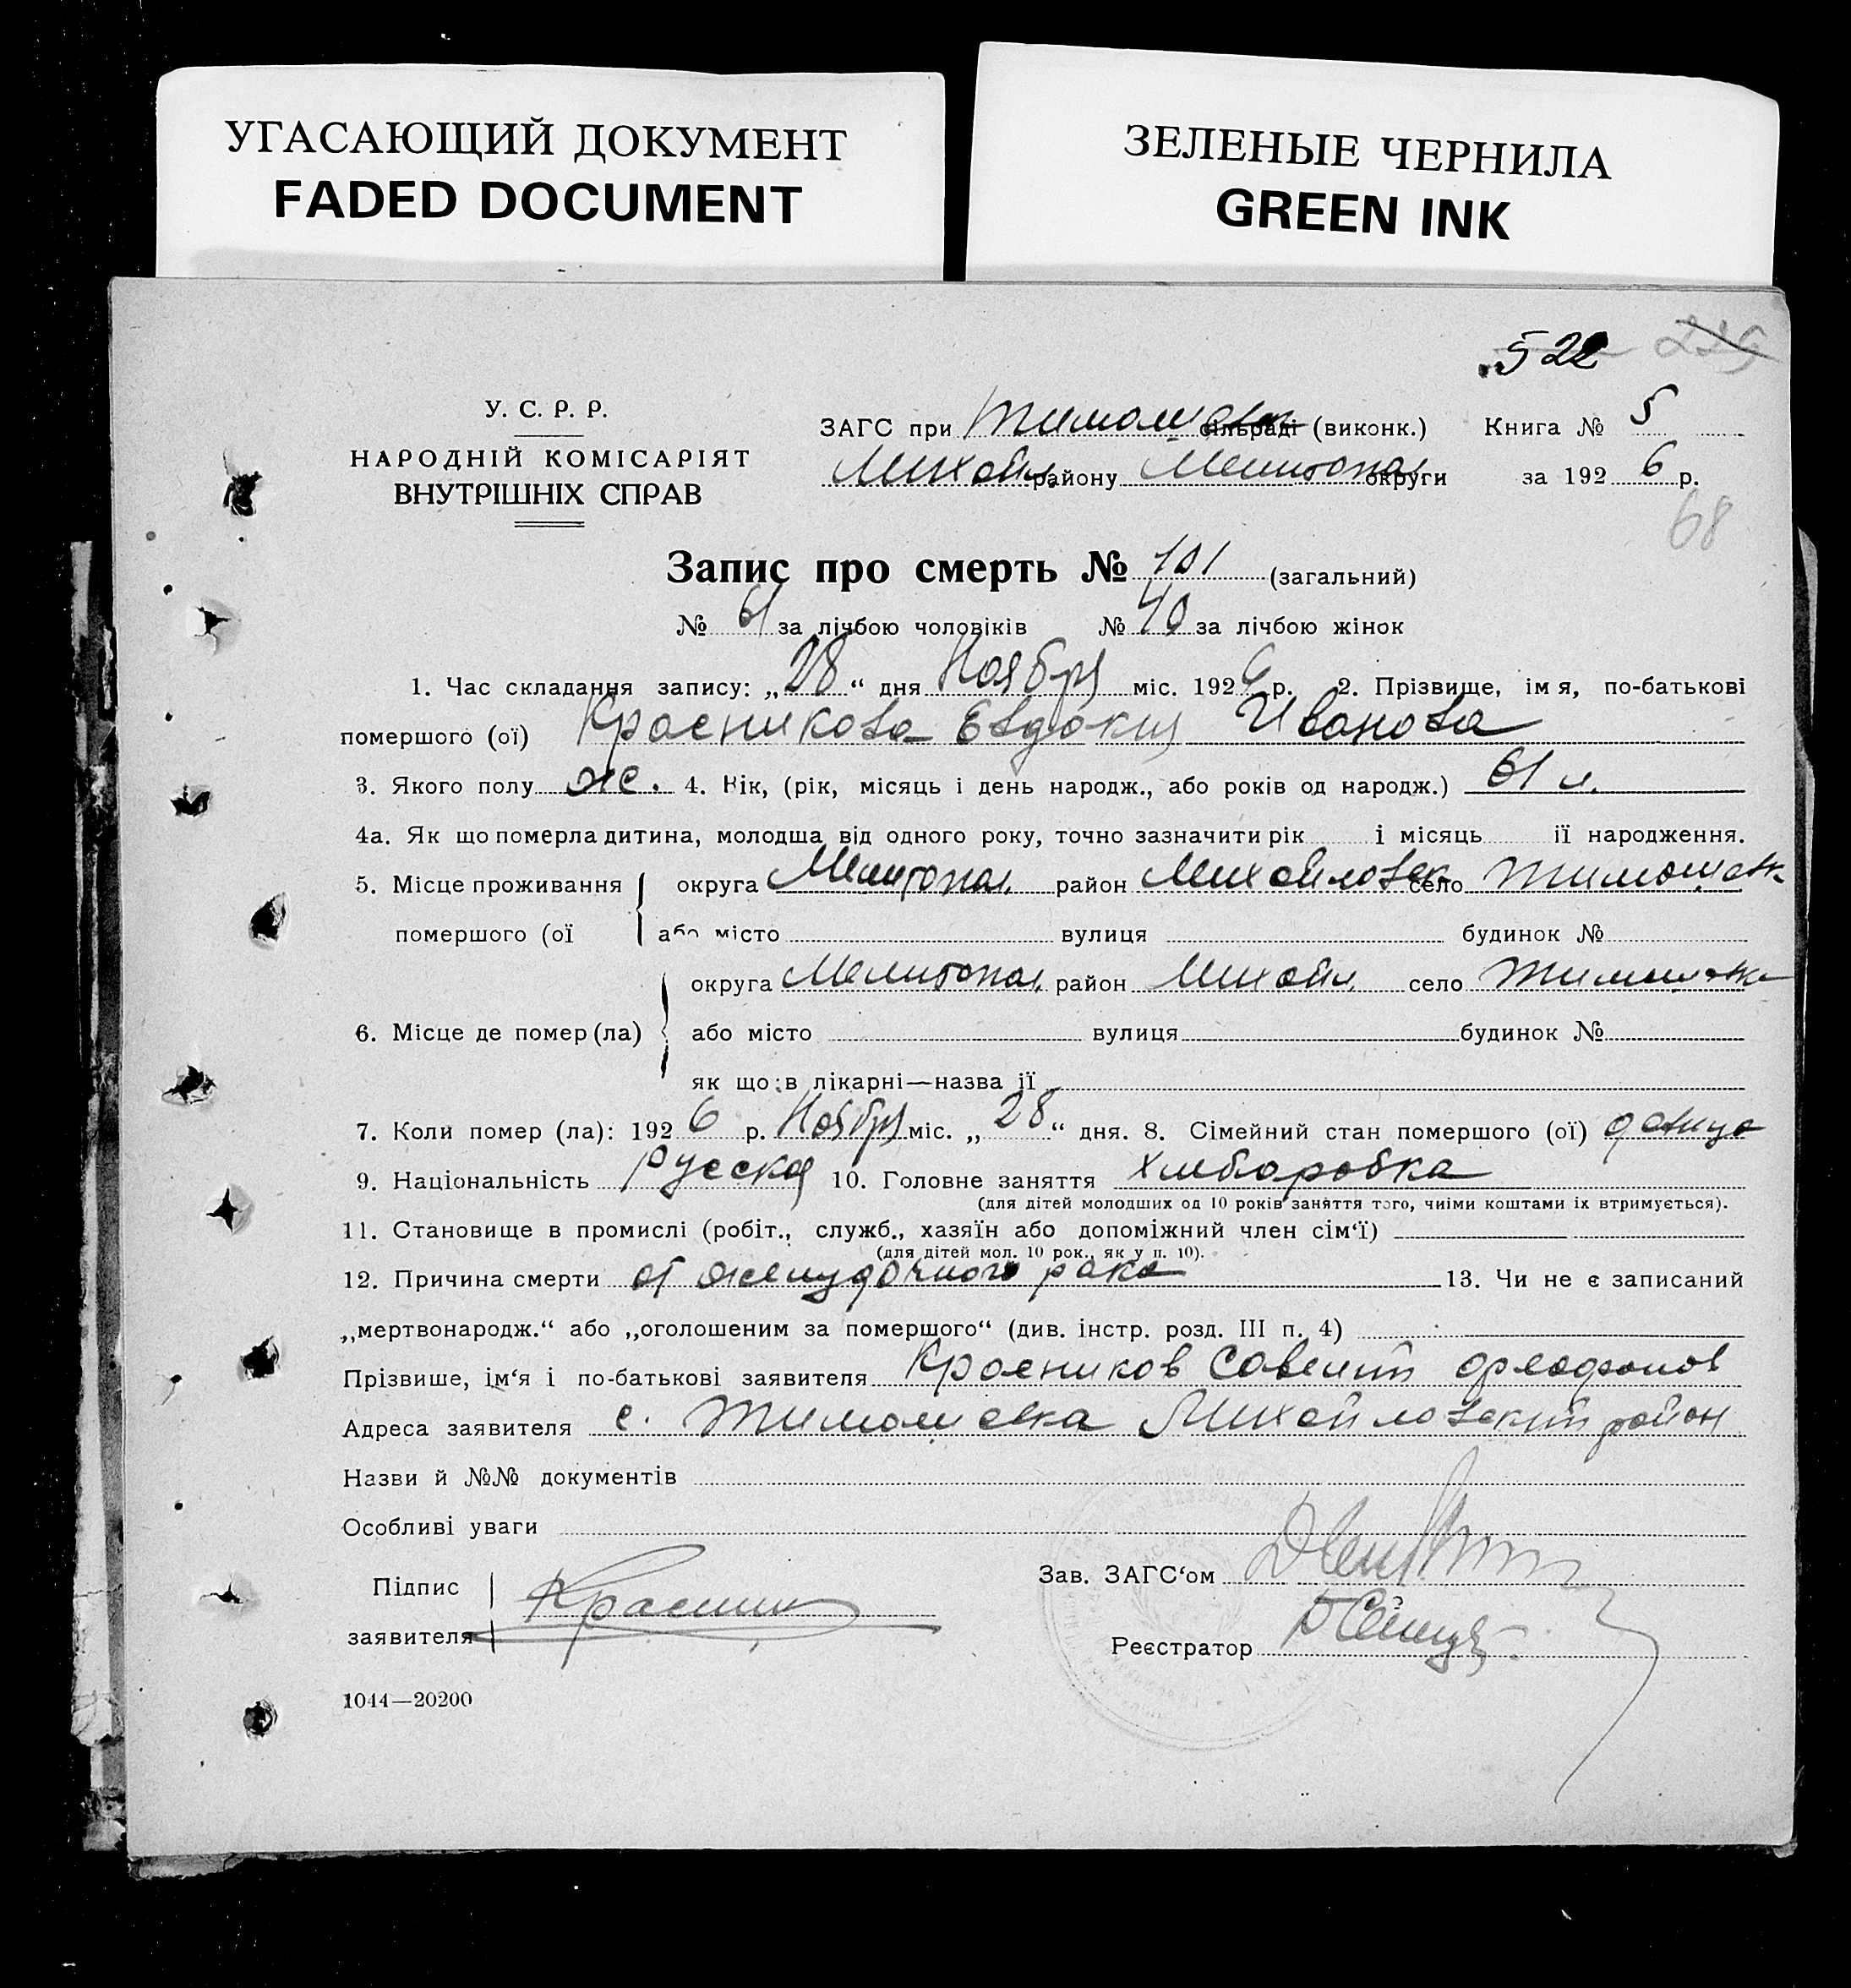 УГАСАЮЩИЙ ДОКУМЕНТ
FADED DOCUMENT
ЗЕЛЕНЫЕ ЧЕРНИЛА
GREEN INK
522
У. С. Р. Р.
НАРОДНІЙ КОМІСАРІЯТ
ВНУТРІШНІХ СПРАВ
ЗАГС при Тимошевк сільраді (виконк.) Книга № 5
Михайл. району Мелитопол округи за 1926 р.
68
Запис про смерть № 101 (загальний)
№ 61 за лічбою чоловіків № 40 за лічбою жінок
1. Час складання запису: „28“ дня Ноября міс. 1926 р. 2. Прізвище, імя, по-батькові
помершого (ої) Красникова Евдокия Иванова
3. Якого полу ж. 4. Вік, (рік, місяць і день народж., або років од народж.) 61 л.
4а. Як що померла дитина, молодша від одного року, точно зазначити рік і місяць ії народження.
5. Місце проживання округа Мелитопол. район Михайловск село Тимошевк
помершого (ої або місто вулиця будинок №
округа Мелитопол. район Михайл. село Тимошевка
6. Місце де помер (ла) або місто вулиця будинок №
як що в лікарні—назва її
7. Коли помер (ла): 1926 р. Ноября міс. „28“ дня. 8. Сімейний стан помершого (ої) девица
9. Національність Русская 10. Головне заняття хлеборобка
(для дітей молодших од 10 років заняття того, чиіми коштами іх втримується).
11. Становище в промислі (робіт., служб., хазяїн або допоміжний член сім‘ї)
(для дітей мол. 10 рок., як у п. 10).
12. Причина смерти от желудочного рака 13. Чи не є записаний
„мертвонародж.“ або „оголошеним за помершого“ (див. інстр. розд. III п. 4)
Прізвише, ім‘я і по-батькові заявителя Красников Савелий
Адреса заявителя с. Тимошевка Михайловский район
Назви й №№ документів
Особливі уваги
Підпис
заявителя
Зав. ЗАГС‘ом
Реєстратор
1044—20200